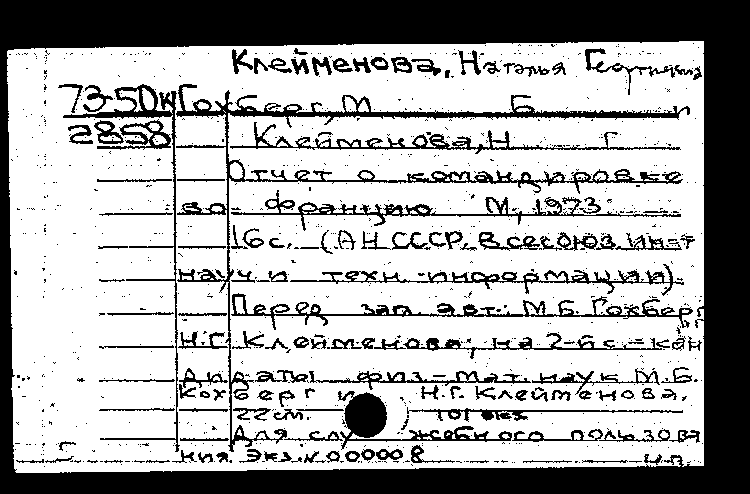 Клейменова, Наталья Георгиевна
73-50к Гохберг, М Б и
2858 Клейменова, Н Г
Отчет о командировке
во Францию М, 1973
16с. (АН СССР. Всесоюз. ин-т
науч и техн. информации).
Перед заг. авт.: М.Б. Гохберг,
Н.Г. Клейменова; на 2-й с. - кан
дидаты физ-мат. наук М.Б.
Кохберг и Н.Г. Клейменова.
22см. 101 экз
Для служебного пользова
ния Экз. № 000008 н.п.